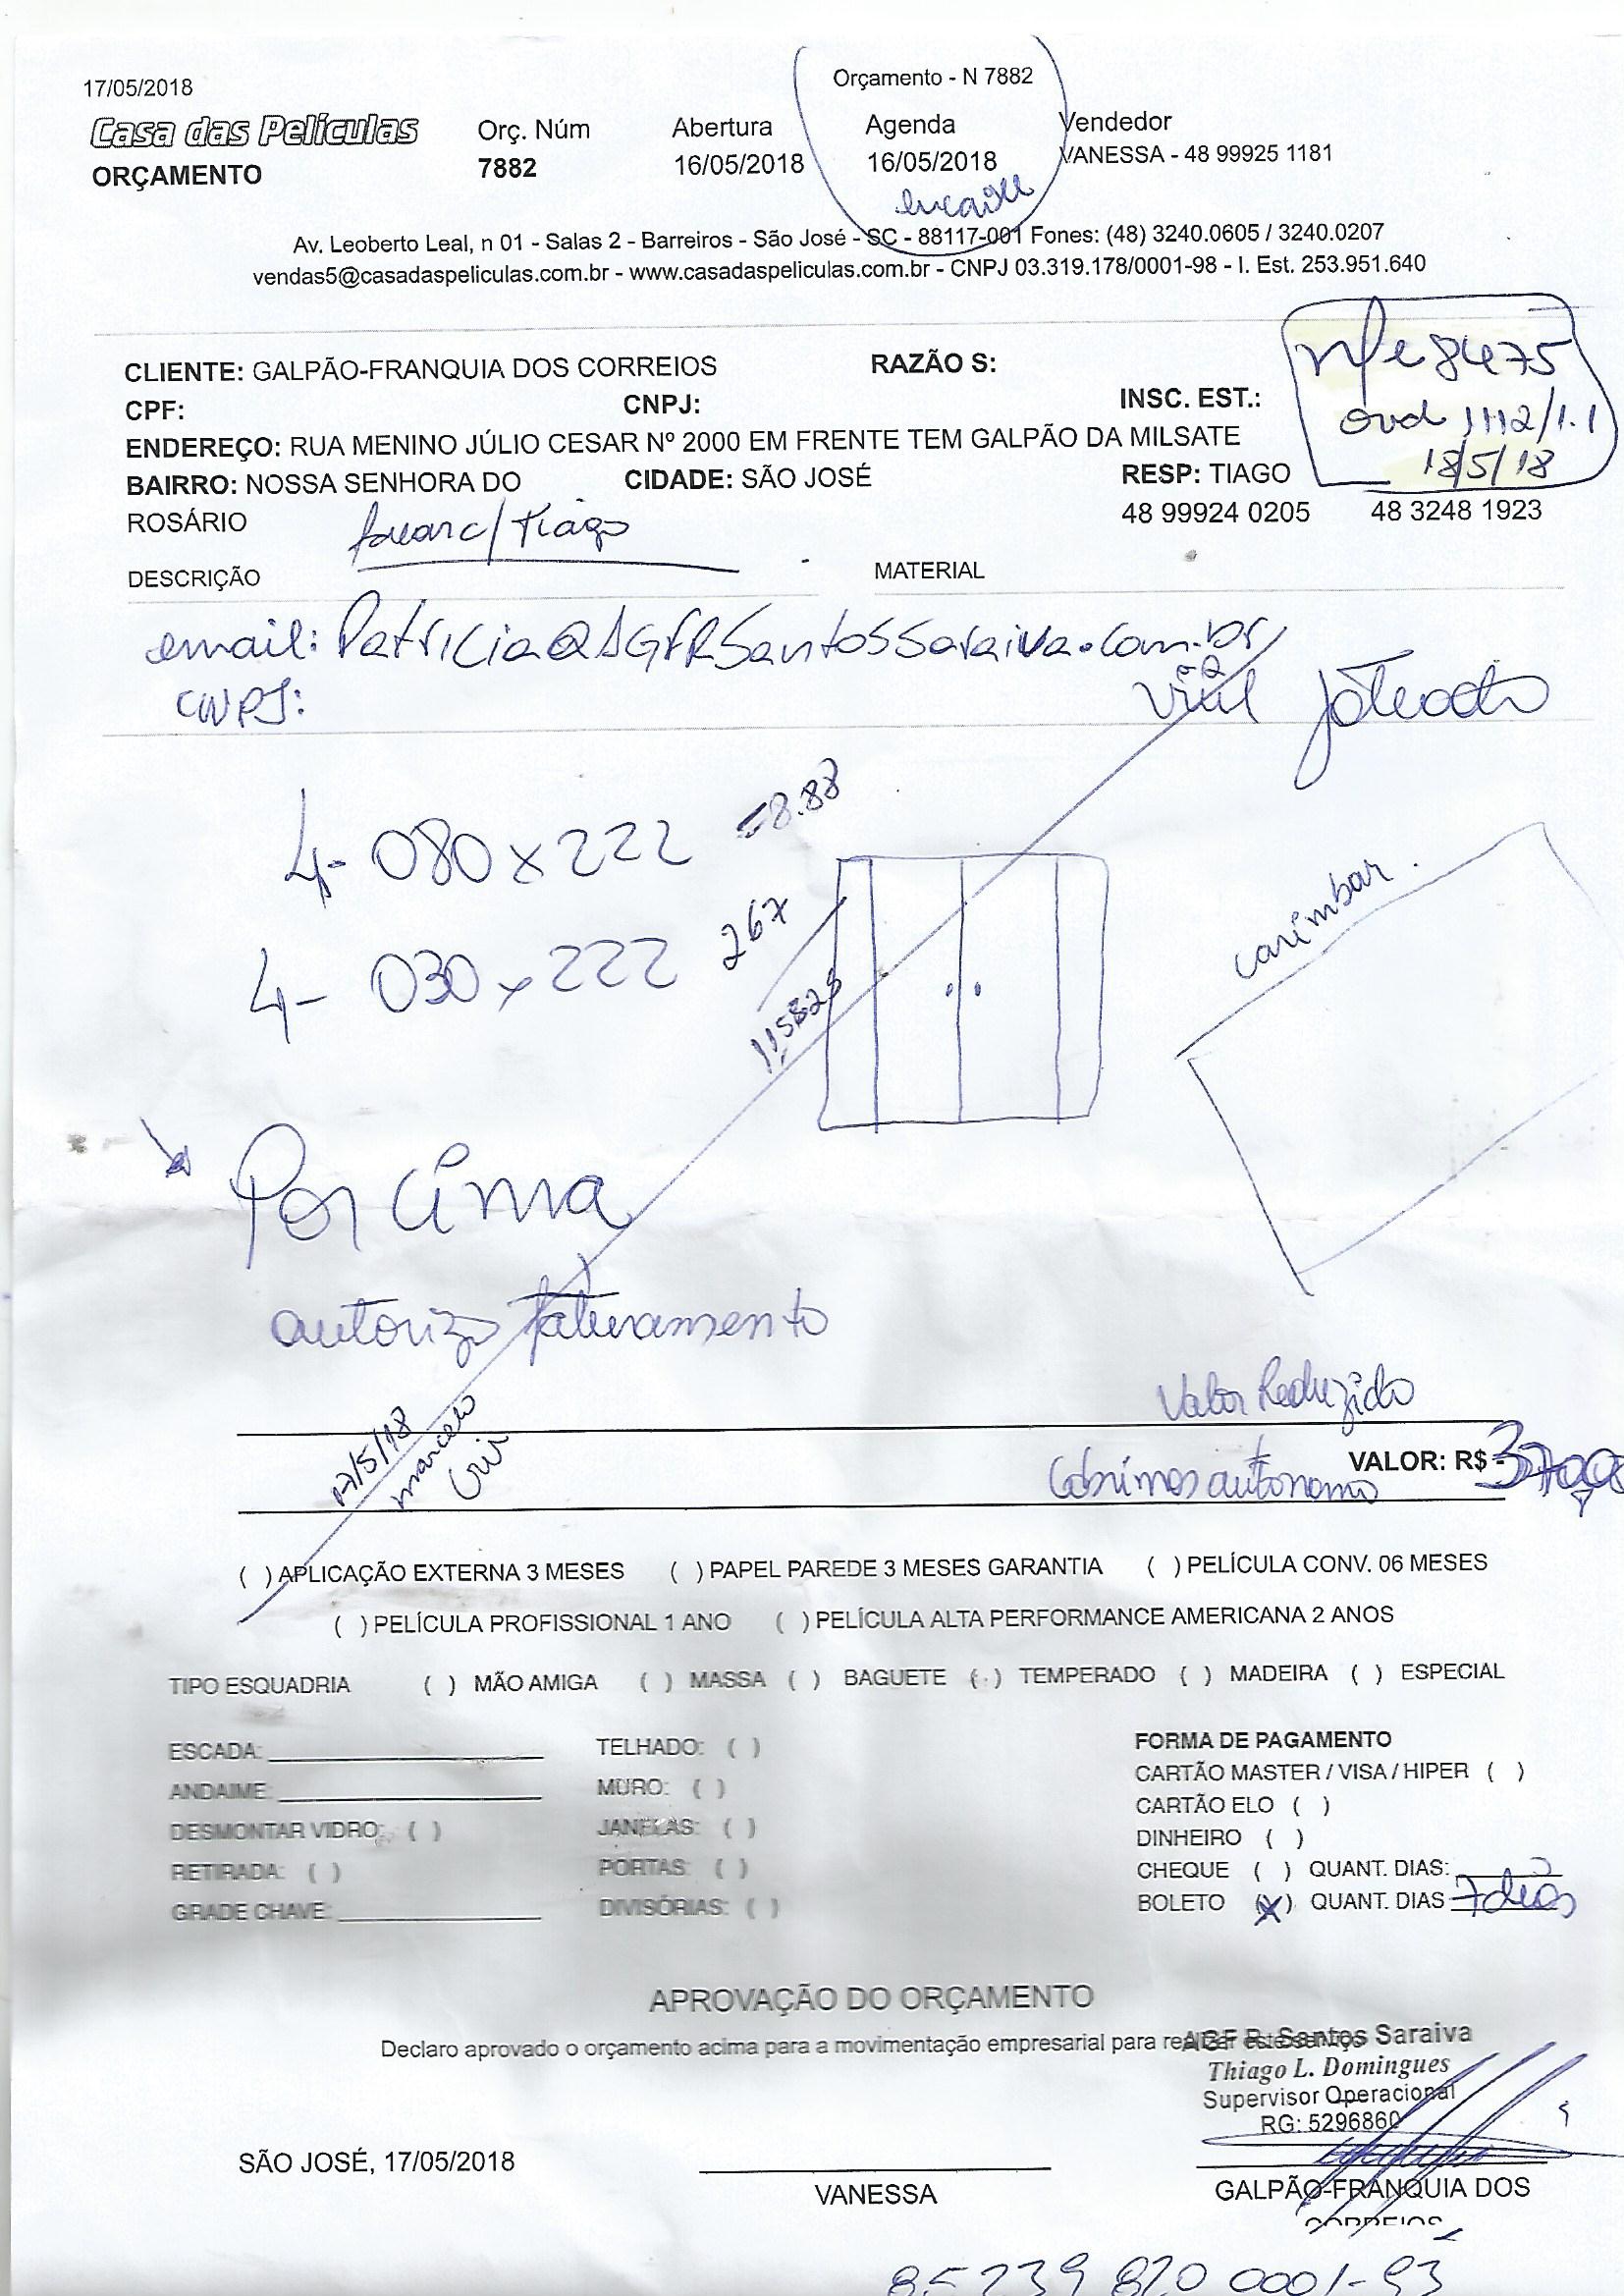 17/05/2018
Orçamento - N 7882
Casa das Películas
ORÇAMENTO
Orç. Núm
7882
Abertura
16/05/2018
Agenda
16/05/2018
Vendedor
VANESSA - 48 99925 1181
Av. Leoberto Leal, n 01 - Salas 2 - Barreiros - São José - SC - 88117-001 Fones: (48) 3240.0605 / 3240.0207
vendas5@casadaspeliculas.com.br - www.casadaspeliculas.com.br - CNPJ 03.319.178/0001-98 - I. Est. 253.951.640
Nfe 8475
18/5/18
CLIENTE: GALPÃO-FRANQUIA DOS CORREIOS RAZÃO S:
CPF: CNPJ: INSC. EST.:
ENDEREÇO: RUA MENINO JÚLIO CESAR Nº 2000 EM FRENTE TEM GALPÃO DA MILSATE
BAIRRO: NOSSA SENHORA DO CIDADE: SÃO JOSÉ RESP: TIAGO
ROSÁRIO 48 99924 0205 48 3248 1923
Tiago
DESCRIÇÃO MATERIAL
email: Patricia@AGFRSantosSaraiva.com.br
CNPJ:
Jateado
4- 080 x 222 =8.88
4- 030 x 222 267
carimbar.
Por cima
autorizo faturamento
17/5/18
marcelo
Valor Reduzido
VALOR: R$
autonomo
( ) APLICAÇÃO EXTERNA 3 MESES ( ) PAPEL PAREDE 3 MESES GARANTIA ( ) PELÍCULA CONV. 06 MESES
( ) PELÍCULA PROFISSIONAL 1 ANO ( ) PELÍCULA ALTA PERFORMANCE AMERICANA 2 ANOS
TIPO ESQUADRIA ( ) MÃO AMIGA ( ) MASSA ( ) BAGUETE ( ) TEMPERADO ( ) MADEIRA ( ) ESPECIAL
ESCADA: TELHADO: ( )
ANDAIME: MURO: ( )
DESMONTAR VIDRO: ( ) JANELAS: ( )
RETIRADA: ( ) PORTAS: ( )
GRADE CHAVE: DIVISÓRIAS: ( )
FORMA DE PAGAMENTO
CARTÃO MASTER / VISA / HIPER ( )
CARTÃO ELO ( )
DINHEIRO ( )
CHEQUE ( ) QUANT. DIAS:
BOLETO (X) QUANT. DIAS 7 dias
APROVAÇÃO DO ORÇAMENTO
Declaro aprovado o orçamento acima para a movimentação empresarial para realizar este serviço
AGF R. Santos Saraiva
Thiago L. Domingues
Supervisor Operacional
RG: 5296860
SÃO JOSÉ, 17/05/2018
VANESSA
GALPÃO-FRANQUIA DOS
CORREIOS
85 239 820 0001-93